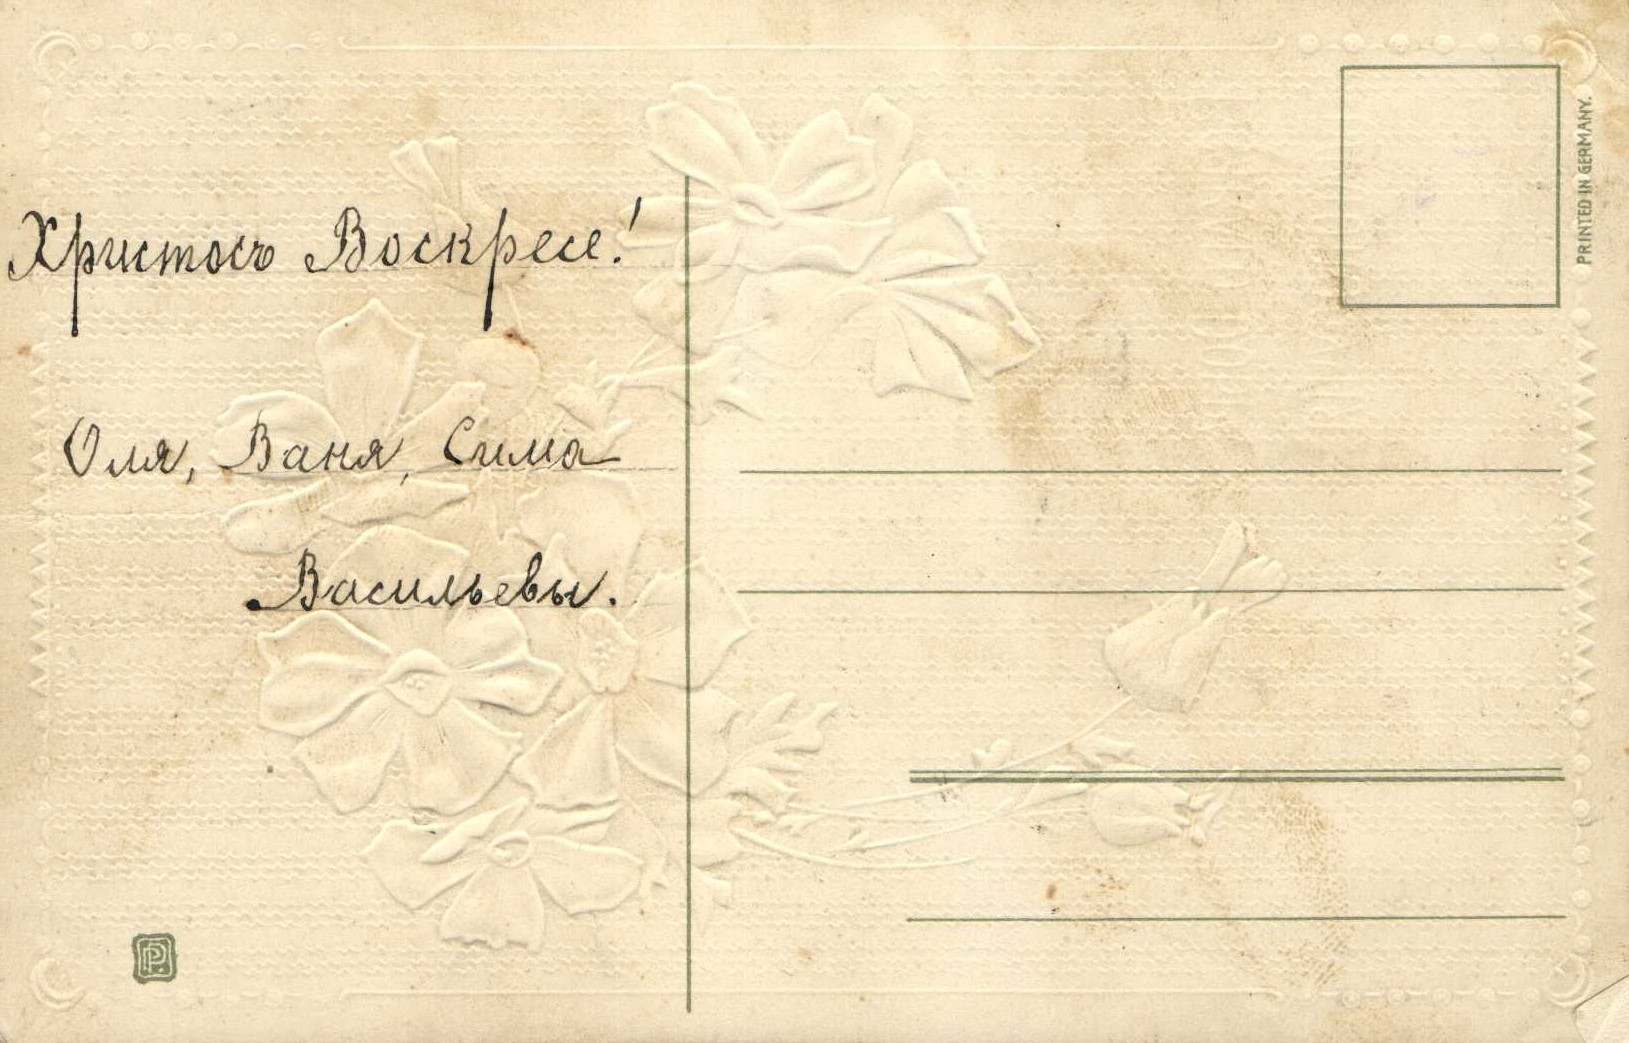 Христосъ Воскресе!
Оля, Ваня, Сима
Васильевы.
PRINTED IN GERMANY.